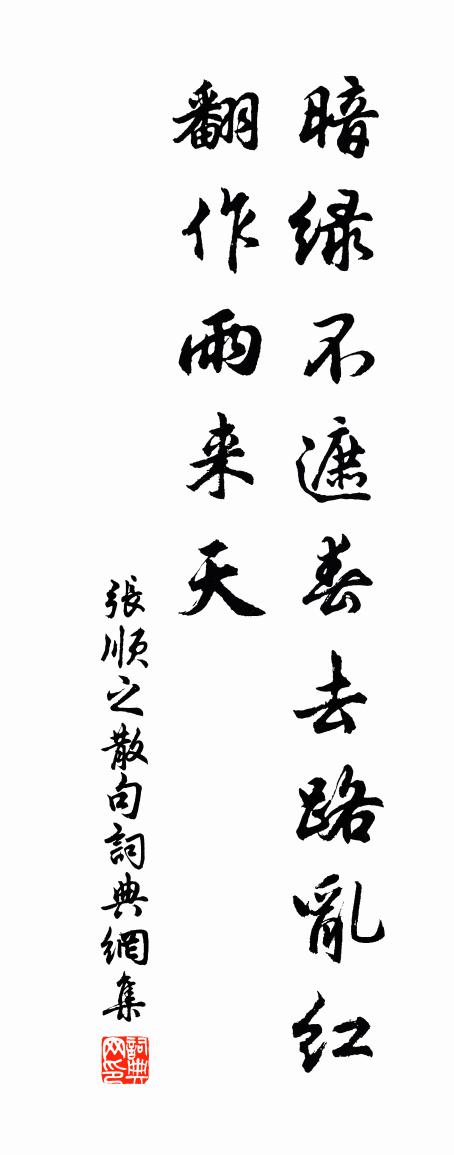 暗緑不遮春去路亂紅
翻作雨来天
張順之散句詞典網集
詞典网印